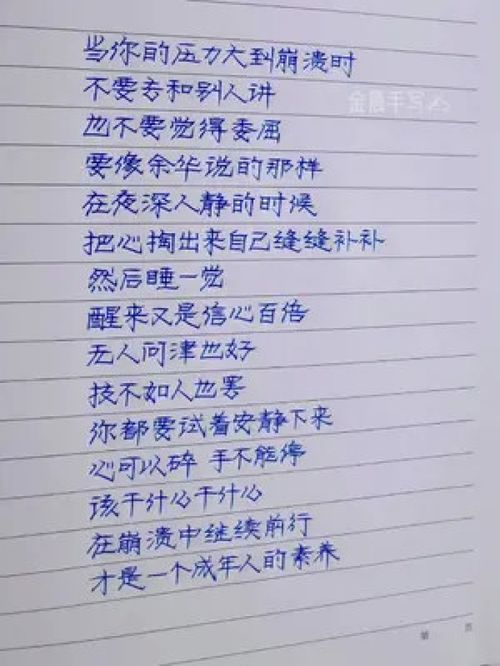 当你的压力大到崩溃时
不要去和别人讲
也不要觉得委屈
要像余华说的那样
在夜深人静的时候
把心掏出来自己缝缝补补
然后睡一觉
醒来又是信心百倍
无人问津也好
技不如人也罢
你都要试着安静下来
心可以碎 手不能停
该干什么干什么
在崩溃中继续前行
才是一个成年人的素养
金晨手写
第 页